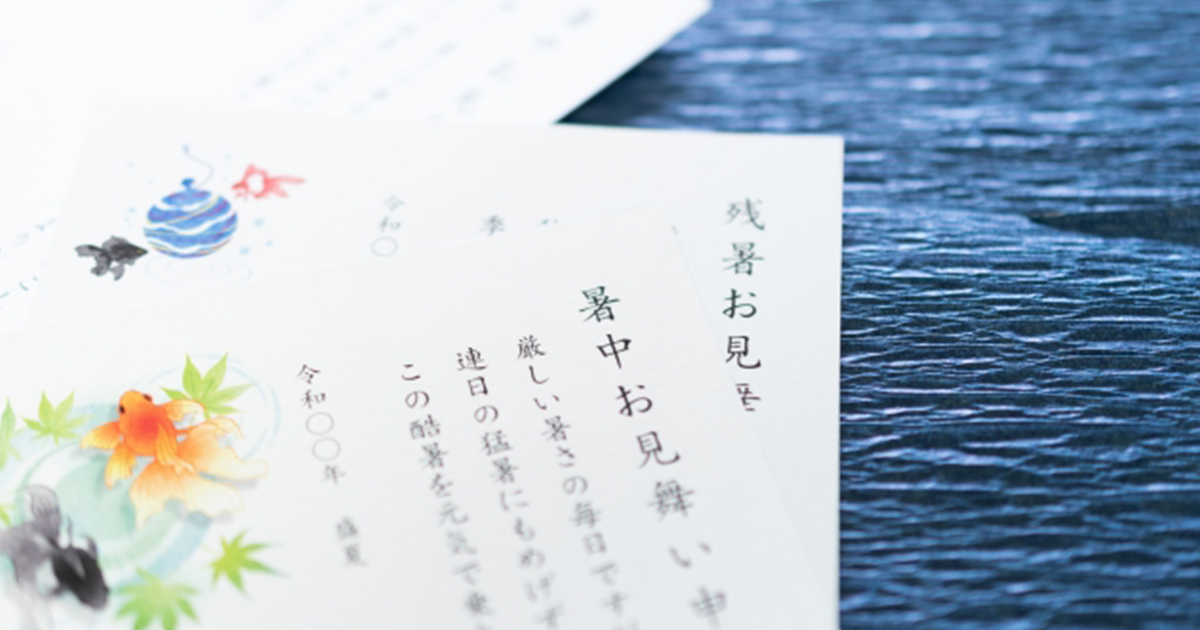 暑中お見舞い申
厳しい暑さの毎日です
連日の猛暑にもめげず
この酷暑を元気で乗
令和〇〇年 盛夏
残暑お見
季
令和〇